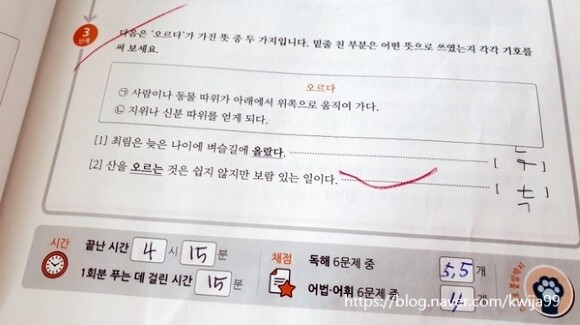 3
단계
다음은 '오르다'가 가진 뜻 중 두 가지입니다. 밑줄 친 부분은 어떤 뜻으로 쓰였는지 각각 기호를
써 보세요.
오르다
㉠ 사람이나 동물 따위가 아래에서 위쪽으로 움직여 가다.
㉡ 지위나 신분 따위를 얻게 되다.
[1] 최림은 늦은 나이에 벼슬길에 올랐다. [ ]
[2] 산을 오르는 것은 쉽지 않지만 보람 있는 일이다. [ ]
시간
끝난 시간 4 시 15 분
1회분 푸는 데 걸린 시간 15 분
채점
독해 6문제 중 5,5 개
어법·어휘 6문제 중 4 개
https://blog.naver.com/kwija99